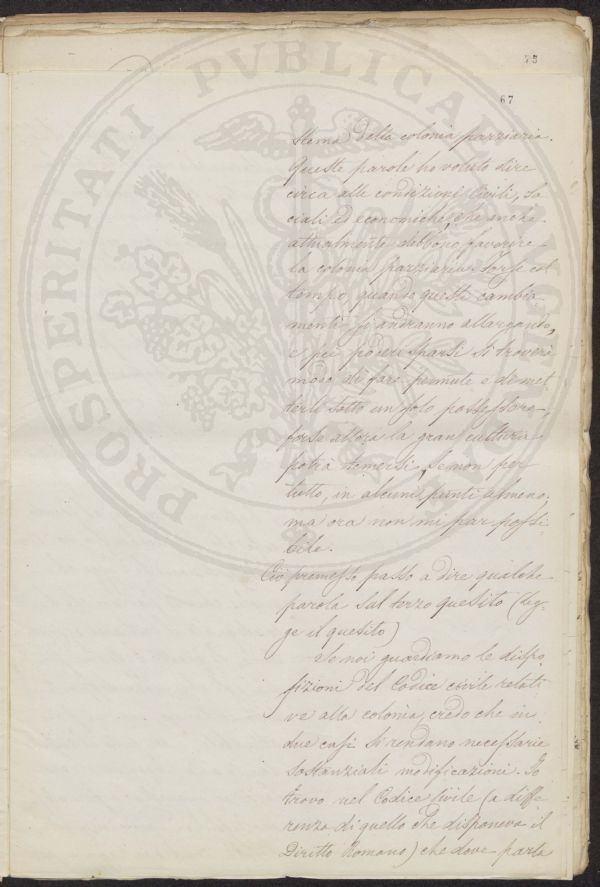 75
67
stema) della colonia parziaria.
Queste parole ho voluto dire
circa alle condizioni civili, so
ciali ed economiche, che anche
attualmente debbono favorire
la colonia parziaria. Forse col
tempo, quando questi cambia
menti si andranno allargando,
e pei poderi sparsi si troverà
modo di fare permute e di met
terli sotto un solo possessore,
forse allora la gran cultura
potrà temersi, se non per
tutto, in alcuni punti almeno;
ma ora non mi par possi
bile.
Ciò premesso passo a dire qualche
parola sul terzo quesito (leg-
ge il quesito)
Se noi guardiamo le dispo
sizioni del Codice civile relati
ve alla colonia, credo che in
due casi si rendano necessarie
sostanziali modificazioni. Io
trovo nel Codice Civile (a diffe
renza di quello che disponeva il
Diritto Romano) che dove parla
PROSPERITATI PVBLICAE